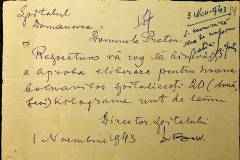 Spitalul
Domanevca
3 Nov. 1943
Domnule Pretor
Respectuos vă rog să binevoiți
a aproba eliberare pentru hrana
bolnavilor spitalicesti 20 (două
zeci) kilograme unt de
Director Spitalului
1 Noembrie 1943